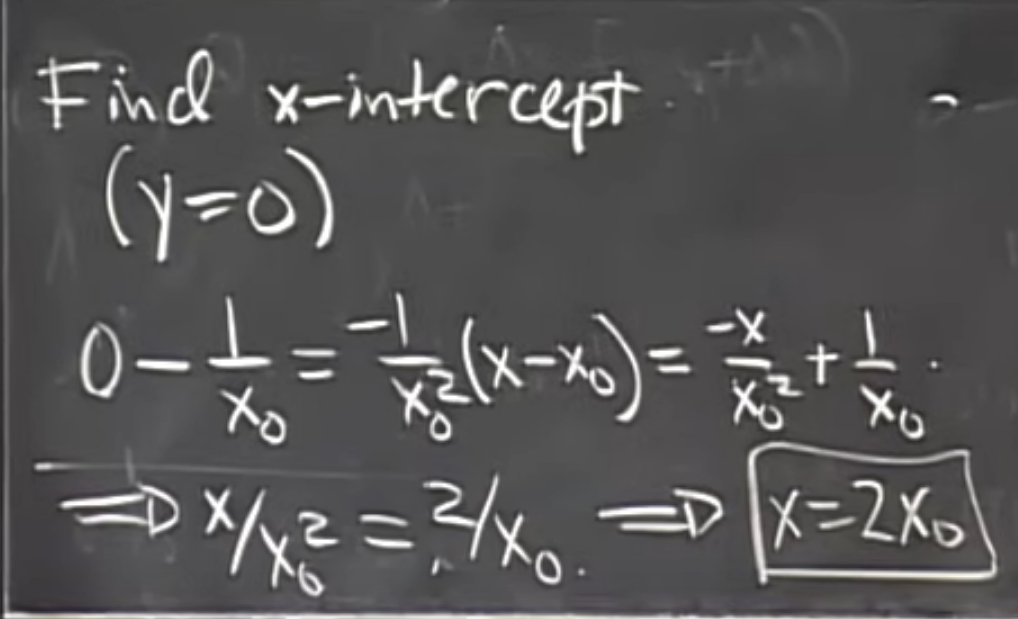 Find x-intercept.
(y=0)
0 - 1/x₀ = -1/x₀² (x-x₀) = -x/x₀² + 1/x₀.
⇒ x/x₀² = 2/x₀. ⇒ x=2x₀